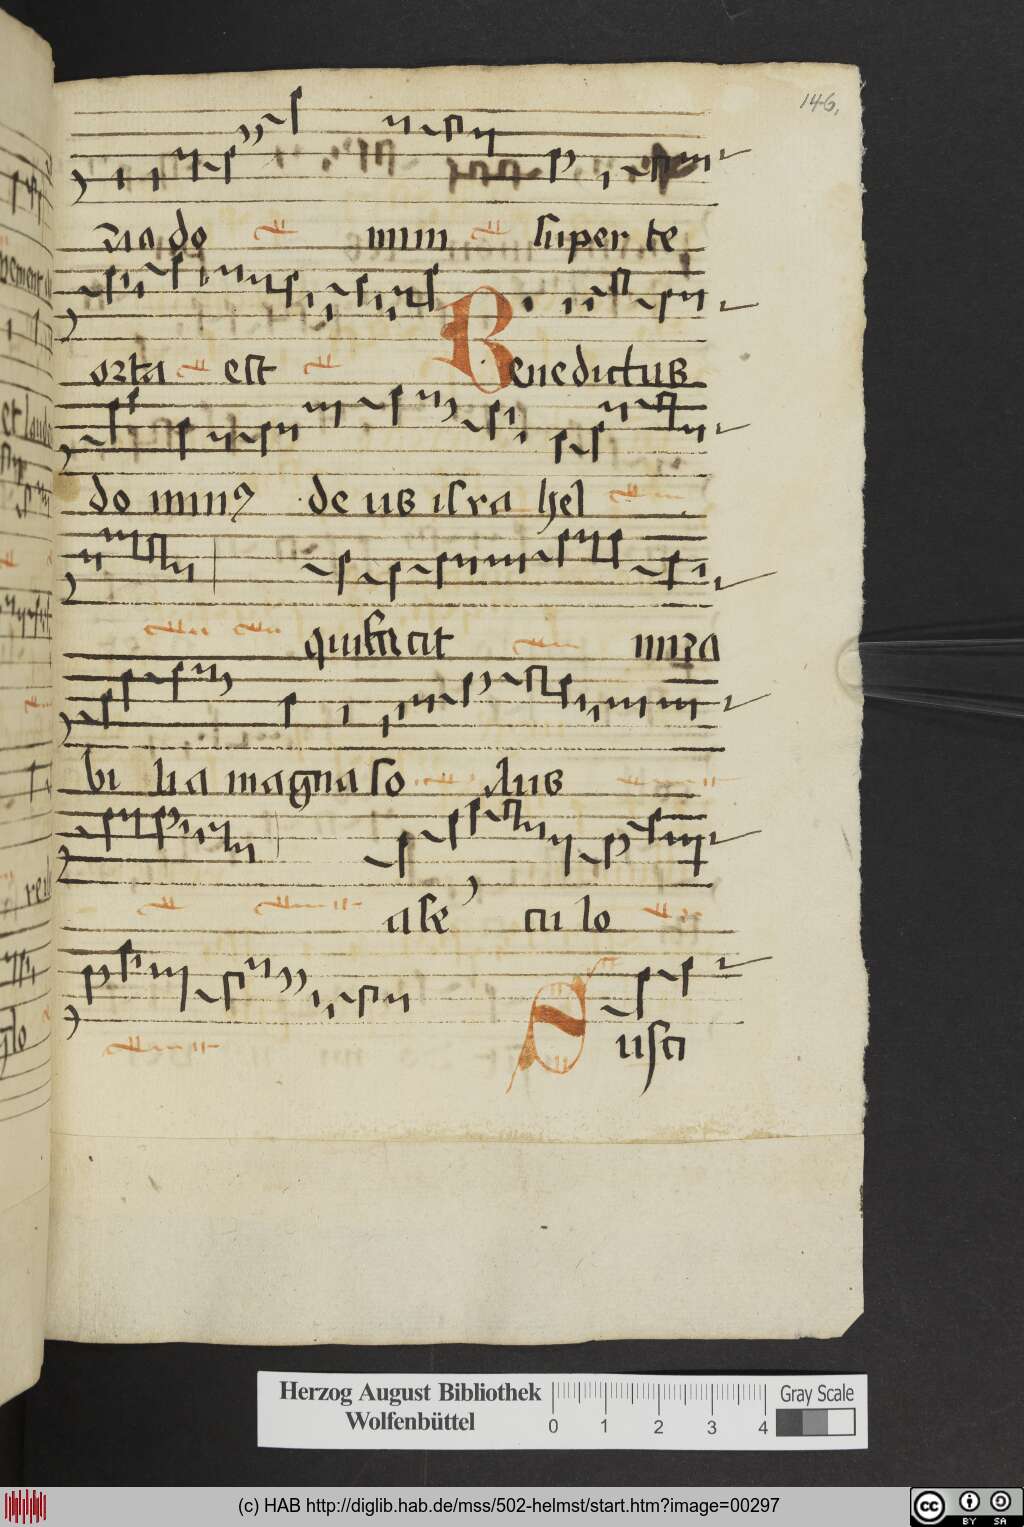 146.
ria do min super te
orta est Benedictus
do minꝰ de us isra hel
qui facit mira
bi lia magna so lus
a se cu lo
Susci
Herzog August Bibliothek
Wolfenbüttel
0 1 2 3 4
Gray Scale
(c) HAB http://diglib.hab.de/mss/502-helmst/start.htm?image=00297
cc BY SA